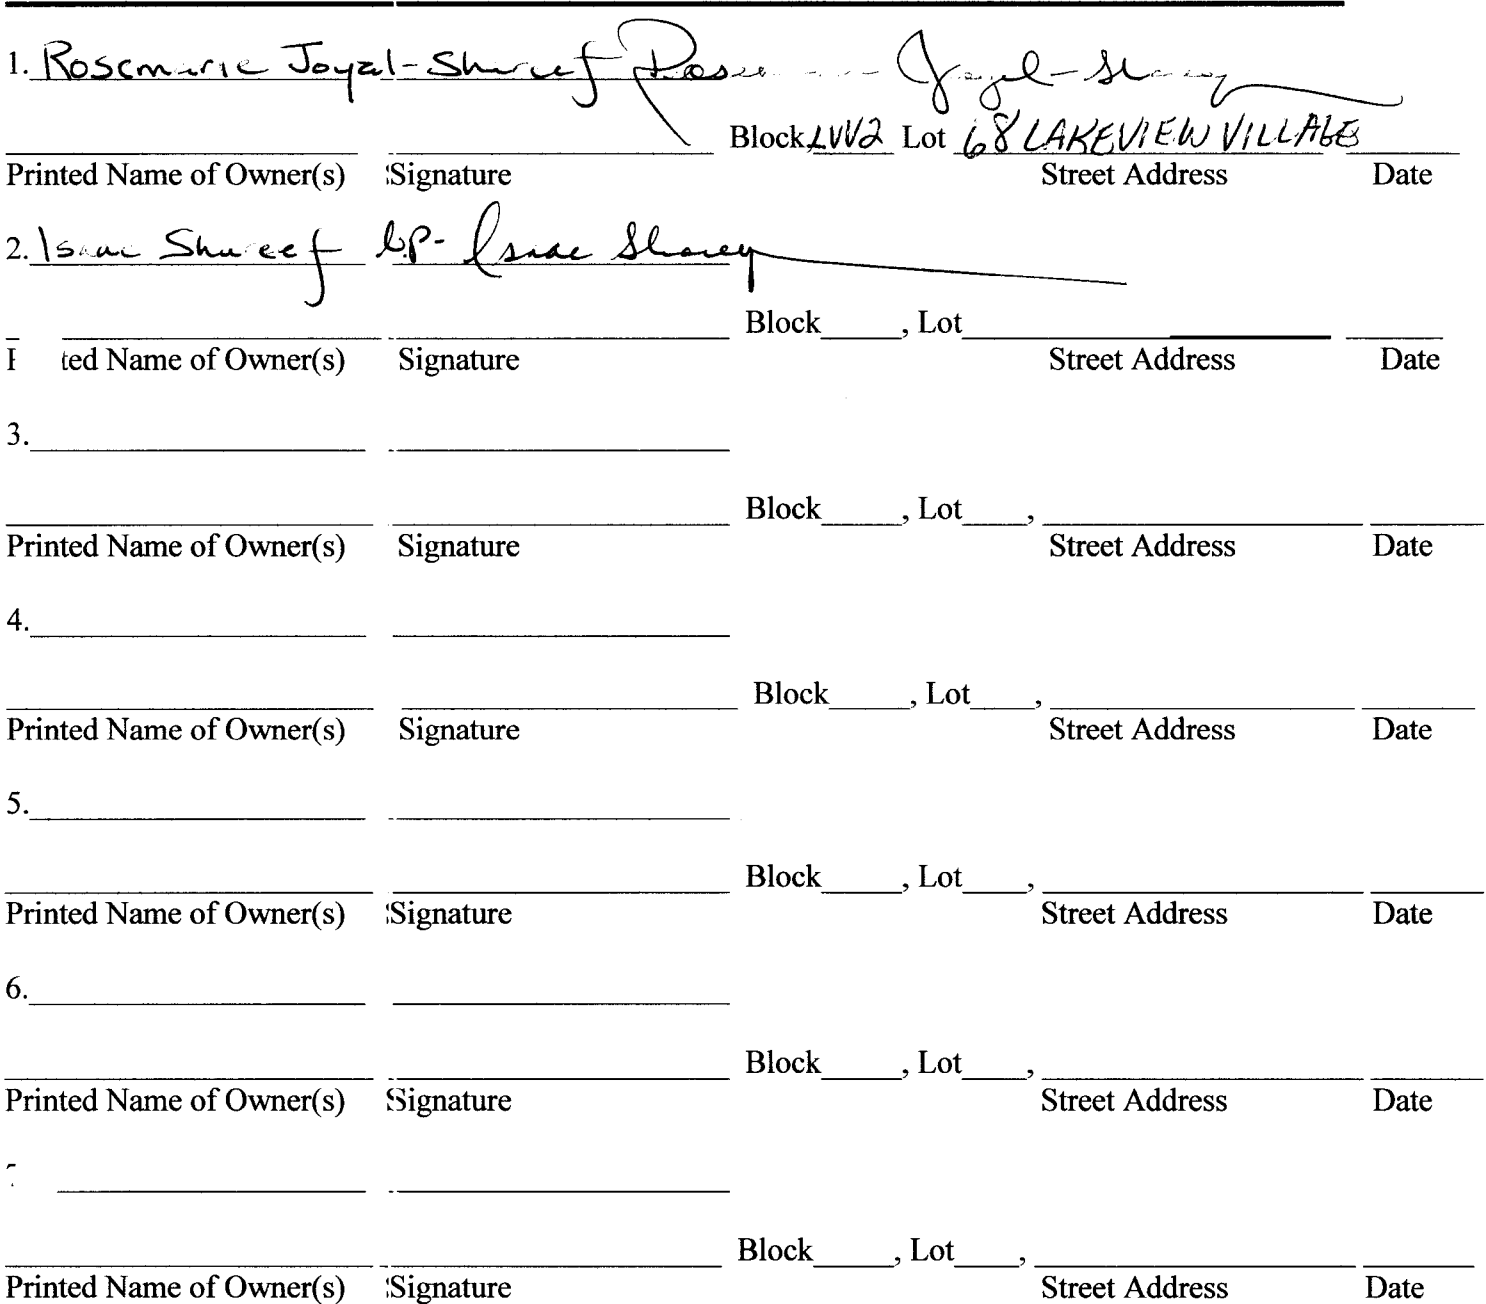 1. Rosemarie Joyal-Shareef Rosemarie Joyal-Shareef
Block LVV2 Lot 68 LAKEVIEW VILLAGE
Printed Name of Owner(s) Signature Street Address Date
2. Isaac Shareef b.p- Isaac Shareef
Block_____, Lot
ted Name of Owner(s) Signature Street Address Date
3.
Block_____, Lot____,
Printed Name of Owner(s) Signature Street Address Date
4.
Block_____, Lot____,
Printed Name of Owner(s) Signature Street Address Date
5.
Block_____, Lot____,
Printed Name of Owner(s) Signature Street Address Date
6.
Block_____, Lot____,
Printed Name of Owner(s) Signature Street Address Date
Block_____, Lot____,
Printed Name of Owner(s) Signature Street Address Date